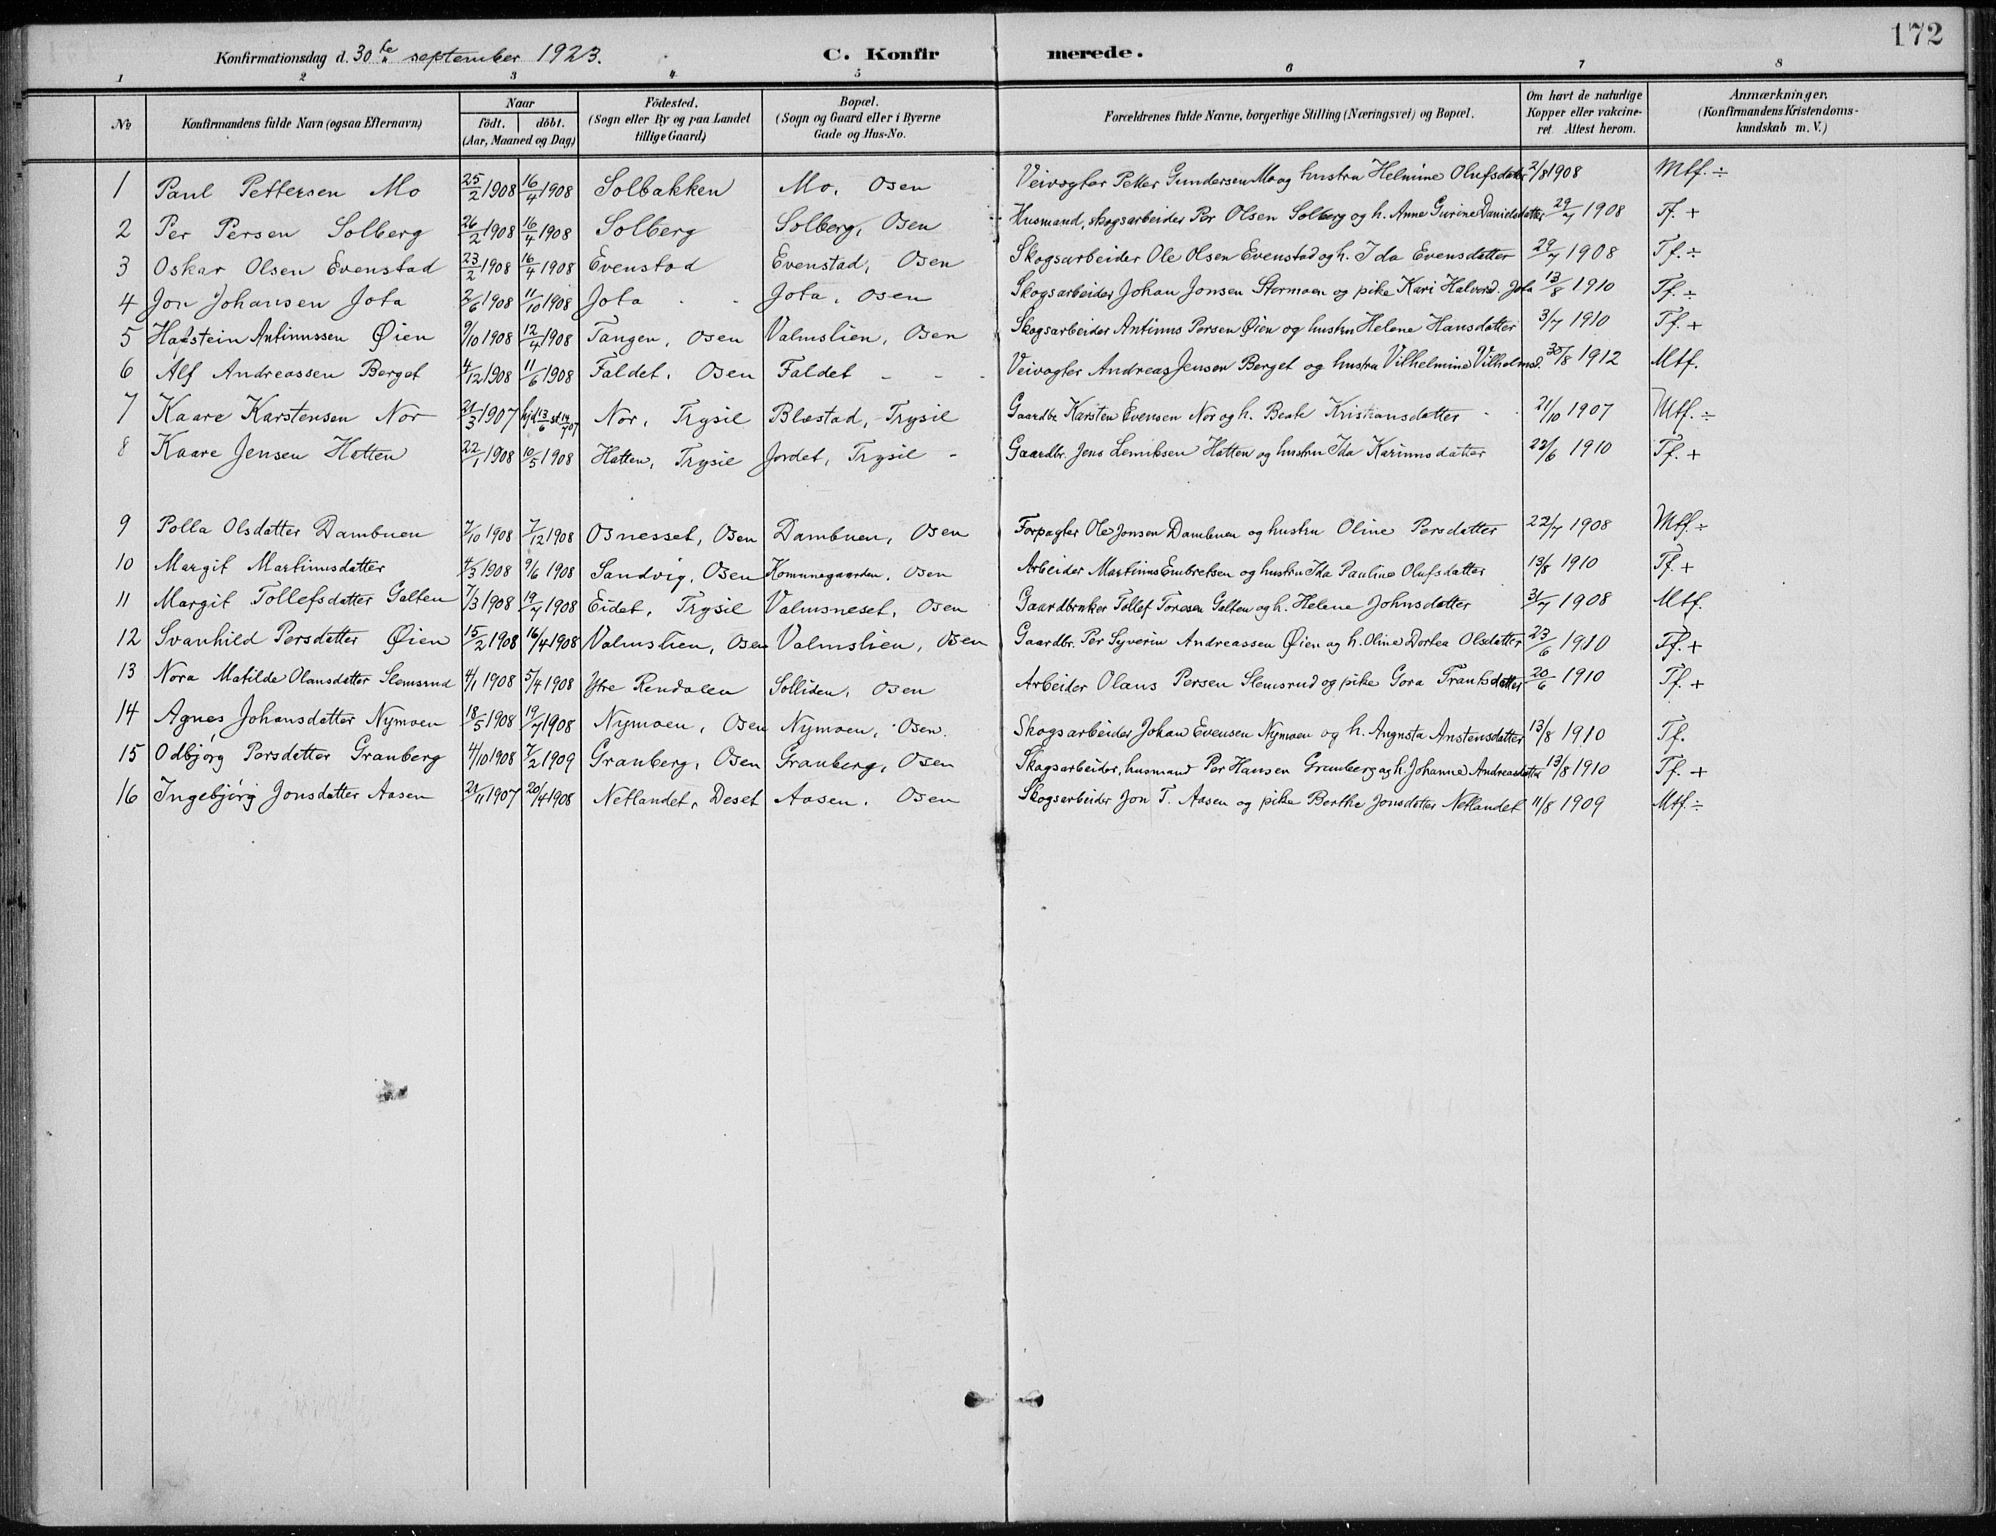 172
Konfirmationsdag d. 30te september 1923. C. Konfirmerede.
1 2 3 4 5 6 7 8
No Konfirmandens fulde Navn (ogsaa Efternavn) Naar födt. döbt. (Aar, Maaned og Dag) Födested. (Sogn eller By og paa Landet tillige Gaard) Bopæl. (Sogn og Gaard eller i Byerne Gade og Hus-No. Forældrenes fulde Navne, borgerlige Stilling (Næringsvei) og Bopæl. Om havt de naturlige Kopper eller vakcineret. Attest herom. Anmærkninger. (Konfirmandens Kristendomskundskab m. V.)
1 Paul Pettersen Mo 25/2 1908 16/4 1908 Solbakken Mo, Osen Veivogter Petter Gundersen Mo og hustru Helmine Olufsdatter 21/8 1908 Mtf. ÷
2 Per Persen Solberg 26/2 1908 16/4 1908 Solberg Solberg, Osen Husmand, skogsarbeider Per Olsen Solberg og h. Anne Gurine Danielsdatter 29/7 1908 Tf. +
3 Oskar Olsen Evenstad 23/2 1908 16/4 1908 Evenstad Evenstad, Osen Skogsarbeider Ole Olsen Evenstad og h. Ida Evensdatter 29/7 1908 Tf. ÷
4 Jon Johansen Jota 2/6 1908 11/10 1908 Jota - - Jota, Osen Skogsarbeider Johan Jonsen Stormoen og pike Kari Halversd. Jota 13/8 1910 Tf. ÷
5 Hafstein Antinussen Øien 9/10 1908 12/4 1908 Tangen, Osen Valmslien, Osen Skogsarbeider Antinus Persen Øien og hustru Helene Hansdatter 3/7 1910 Tf. +
6 Alf Andreassen Berget 4/12 1908 11/6 1908 Faldet, Osen Faldet - - - Veivogter Andreas Jensen Berget og hustru Vilhelmine Vilhelmsd. 30/8 1912 Mtf.
7 Kaare Karstensen Nor 21/3 1907 hjd 13/6 st 14/7 07 Nor, Trysil Blæstad, Trysil Gaardbr. Karsten Evensen Nor og h. Beate Kristiansdatter - - 21/10 1907 Mtf. ÷
8 Kaare Jensen Hatten 22/1 1908 10/5 1908 Hatten, Trysil Jordet, Trysil - Gaardbr. Jens Henriksen Hatten og hustru Ida Karinusdatter 22/6 1910 Tf. +
9 Polla Olsdatter Dambuen 7/10 1908 7/12 1908 Osnesset, Osen Dambuen, Osen Forpagter Ole Jonsen Dambuen og hustru Oline Persdatter 22/7 1908 Mtf. ÷
10 Margit Martinusdatter 4/3 1908 9/6 1908 Sandvig, Osen Komunegaarden, Osen Arbeider Martinus Embretsen og hustru Ida Pauline Olufsdatter 13/8 1910 Tf. +
11 Margit Tollefsdatter Galten 7/3 1908 19/7 1908 Eidet, Trysil Valmsneset, Osen Gaardbruker Tollef Toresen Galten og h. Helene Johnsdatter 31/7 1908 Mtf.
12 Svanhild Persdatter Øien 15/2 1908 16/4 1908 Valmslien, Osen Valmslien, Osen Gaardbr. Per Syverin Andreassen Øien og h. Oline Dortea Olsdatter 23/6 1910 Tf. +
13 Nora Matilde Olausdatter Slemsrud 4/1 1908 5/4 1908 Ytre Rendalen Solliden, Osen Arbeider Olaus Persen Slemsrud og pike Gora Frantsdatter 20/6 1910 Tf. +
14 Agnes Johansdatter Nymoen 18/5 1908 19/7 1908 Nymoen, Osen Nymoen, Osen. Skogsarbeider Johan Evensen Nymoen og h. Augusta Anstensdatter 13/8 1910 Tf.
15 Odbjørg Persdatter Granberg 4/10 1908 7/2 1909 Granberg, Osen Granberg, Osen Skogsarbeider, husmand Per Hansen Granberg og h. Johanne Andreasdatter 13/8 1910 Tf. +
16 Ingebjørg Jonsdatter Aasen 21/11 1907 20/4 1908 Netlandet, Deset Aasen, Osen Skogsarbeider Jon T. Aasen og pike Berthe Jonsdatter Netlandet 11/8 1909 Mtf. ÷